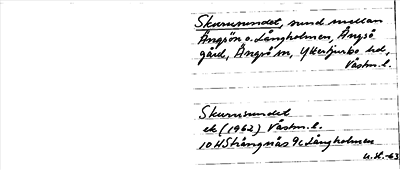 Skurusundet, sund mellan
Ängsön o. Långholmen, Ängsö
gård, Ängsö sn, Yttertjurbo hd,
Västm. l.
Skurusundet
ek (1962) Västm. l.
10H Strängnäs 9c Långholmen
U.St.-63